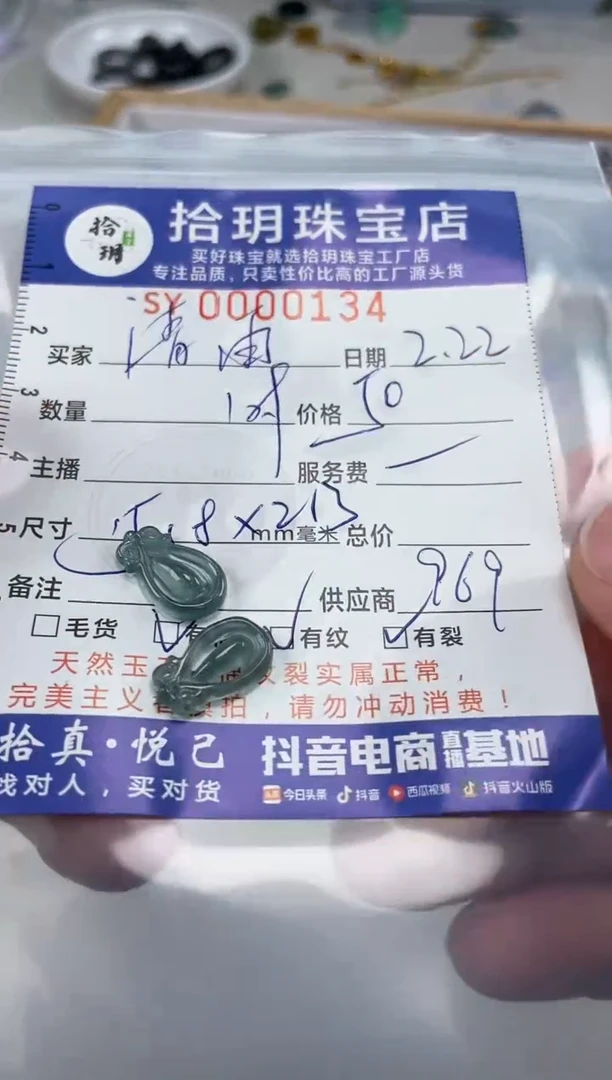 拾玥
拾玥珠宝店
买好珠宝就选拾玥珠宝工厂店
专注品质，只卖性价比高的工厂源头货
SY 0000134
买家 清 日期 2.22
数量 1对 价格 50
主播 服务费
尺寸 mm毫米 总价
备注 供应商 969
毛货 有纹 有裂
天然玉 裂实属正常，
完美主义者慎拍，请勿冲动消费！
拾真·悦己 抖音电商直播基地
找对人，买对货 今日头条 抖音 西瓜视频 抖音火山版
0
1
2
3
4
5